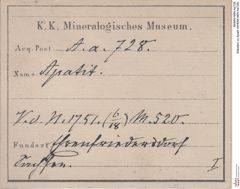 K. K. Mineralogisches Museum.
Acq. Post A. a. 728.
Name Apatit.
V. d. N. 1751. (6/18) M. 520.
Fundort Ehrenfriedersdorf
Sachsen. I